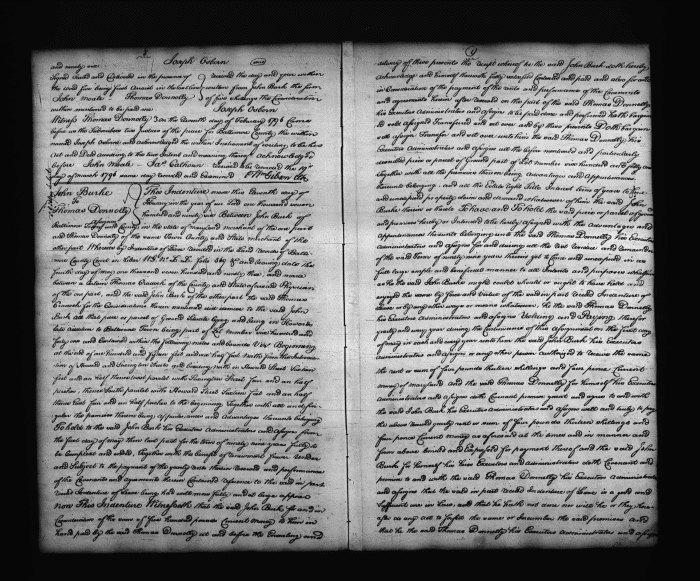 8 Joseph Osborn
and ninety six
Signed Sealed and Delivered in the presence of received the day and year within
the Said from John Burke the sum
John Moale Thomas Donnelly of five shillings the Consideration
within mentioned to be paid me Joseph Osborn
Witness Thomas Donnelly On the Eleventh day of February 1796 Came
before us the Subscribers two Justices of the peace for Baltimore County the within
named Joseph Osborn and acknowledged the within Instrument of writing to be his
Act and Deed according to the true Intent and meaning thereof Acknowledged
before John Moale Jas. Calhoun received to be recorded the 17th
day of March 1796 same day recorded and Examined Wm Gibson Clk
John Burke This Indenture made this Eleventh day of
To February in the year of our Lord one thousand seven
Thomas Donnelly hundred and ninety six Between John Burke of
Baltimore County and the State of Maryland merchant of the one part
and Thomas Donnelly of the same Town County and State merchant of the
other part Whereas by Indenture of Lease recorded in the Land Records of Balti-
more County Court in Liber W.G. No. folio 369 & and bearing date the
fourth day of May one thousand seven hundred and ninety three and made
between a certain Thomas of the County and State aforesaid Physician
of the one part, and the said John Burke of the other part the said Thomas
for the Consideration therein mentioned did demise to the said John
Burke all that piece or parcel of Ground situate lying and being in Howards
late addition to Baltimore Town being part of Lot number one hundred and
forty six and Contained within the following metes and bounds Viz Beginning
at the end of one hundred and fifteen feet and one half foot North from the Intersec-
tion of Howard and Streets and bounding with on Howard Street
feet and an half thence west parallel with Street feet and an half
thence South parallel with Howard Street feet and an half
thence East feet and an half to the beginning Together with all and sin-
gular the premises thereon being appurtenances and Advantages thereunto belonging
To hold to the said John Burke his Executors Administrators and Assigns from
the first day of May then last past for the term of ninety nine years fully to
be Compleat and ended, Together with the benefit of renewment from under
and Subject to the payment of the yearly rents therein reserved and performance
of the Covenants and agreements therein Contained reference to the said in part
recited Indenture of Lease being had will more fully and at large appear
now This Indenture Witnesseth that the said John Burke for and in
Consideration of the sum of five hundred pounds Current money to him in
hand paid by the said Thomas Donnelly at and before the Ensealing and
9
delivery of these presents the receipt whereof he the said John Burke doth hereby
acknowledge and himself therewith fully satisfied Contented and paid and also for and
in Consideration of the payment of the rents and performance of the Covenants
and agreements herein after reserved on the part of the said Thomas Donnelly
his Executors Administrators and Assigns to be paid done and performed hath bargain-
ed sold assigned Transferred and set over and by these presents Doth bargain
sell assign Transfer and set over unto him the said Thomas Donnelly his
Executors Administrators and Assigns all the before mentioned and particularly
described piece or parcel of Ground part of Lot number one hundred and forty six
together with all the premises thereon being Advantages and appurtenances
thereunto belonging, and all the Estate Right Title Interest term of years to Come
and unexpired property claim and demand whatsoever of him the said John
Burke therein or thereto To have and To hold the said piece or parcel of ground
and premises hereby or Intended to be hereby assigned with the advantages and
Appurtenances thereunto belonging unto the said Thomas Donnelly his Executors
Administrators and Assigns for and during all the rest residue and remainder
of the said Term of ninety nine years therein yet to Come and unexpired in as
full large ample and beneficial manner to all Intents and purposes whatsoever
as he the said John Burke might could should or ought to have held and
enjoyed the same by force and virtue of the said in part recited Indenture of
Lease or by any other ways or means whatsoever, he the said Thomas Donnelly
his Executors Administrators and Assigns Yielding and Paying therefor
yearly and every year during the Continuance of this Assignment on the first day
of May in each and every year unto him the said John Burke his Executors
administrators and Assigns or any other person authorized to receive the same
the rent or sum of four pounds thirteen shillings and four pence Current
money of Maryland and the said Thomas Donnelly for himself his Executors
Administrators and Assigns doth Covenant promise grant and agree to and with
the said John Burke his Executors Administrators and Assigns well and truly to pay
the above named yearly rent or sum of four pounds thirteen shillings and
four pence Current money as aforesaid at the times and in manner and
form above limited and Expressed for payment thereof and the said John
Burke for himself his Heirs Executors and Administrators doth Covenant and
promise to and with the said Thomas Donnelly his Executors Administrators
and Assigns that the said in part recited Indenture of Lease is a good and
sufficient one in Law, and that he hath not done nor will he or they here-
after do any act to forfeit the same or Incumber the said premises and
that he the said Thomas Donnelly his Executors Administrators and Assigns